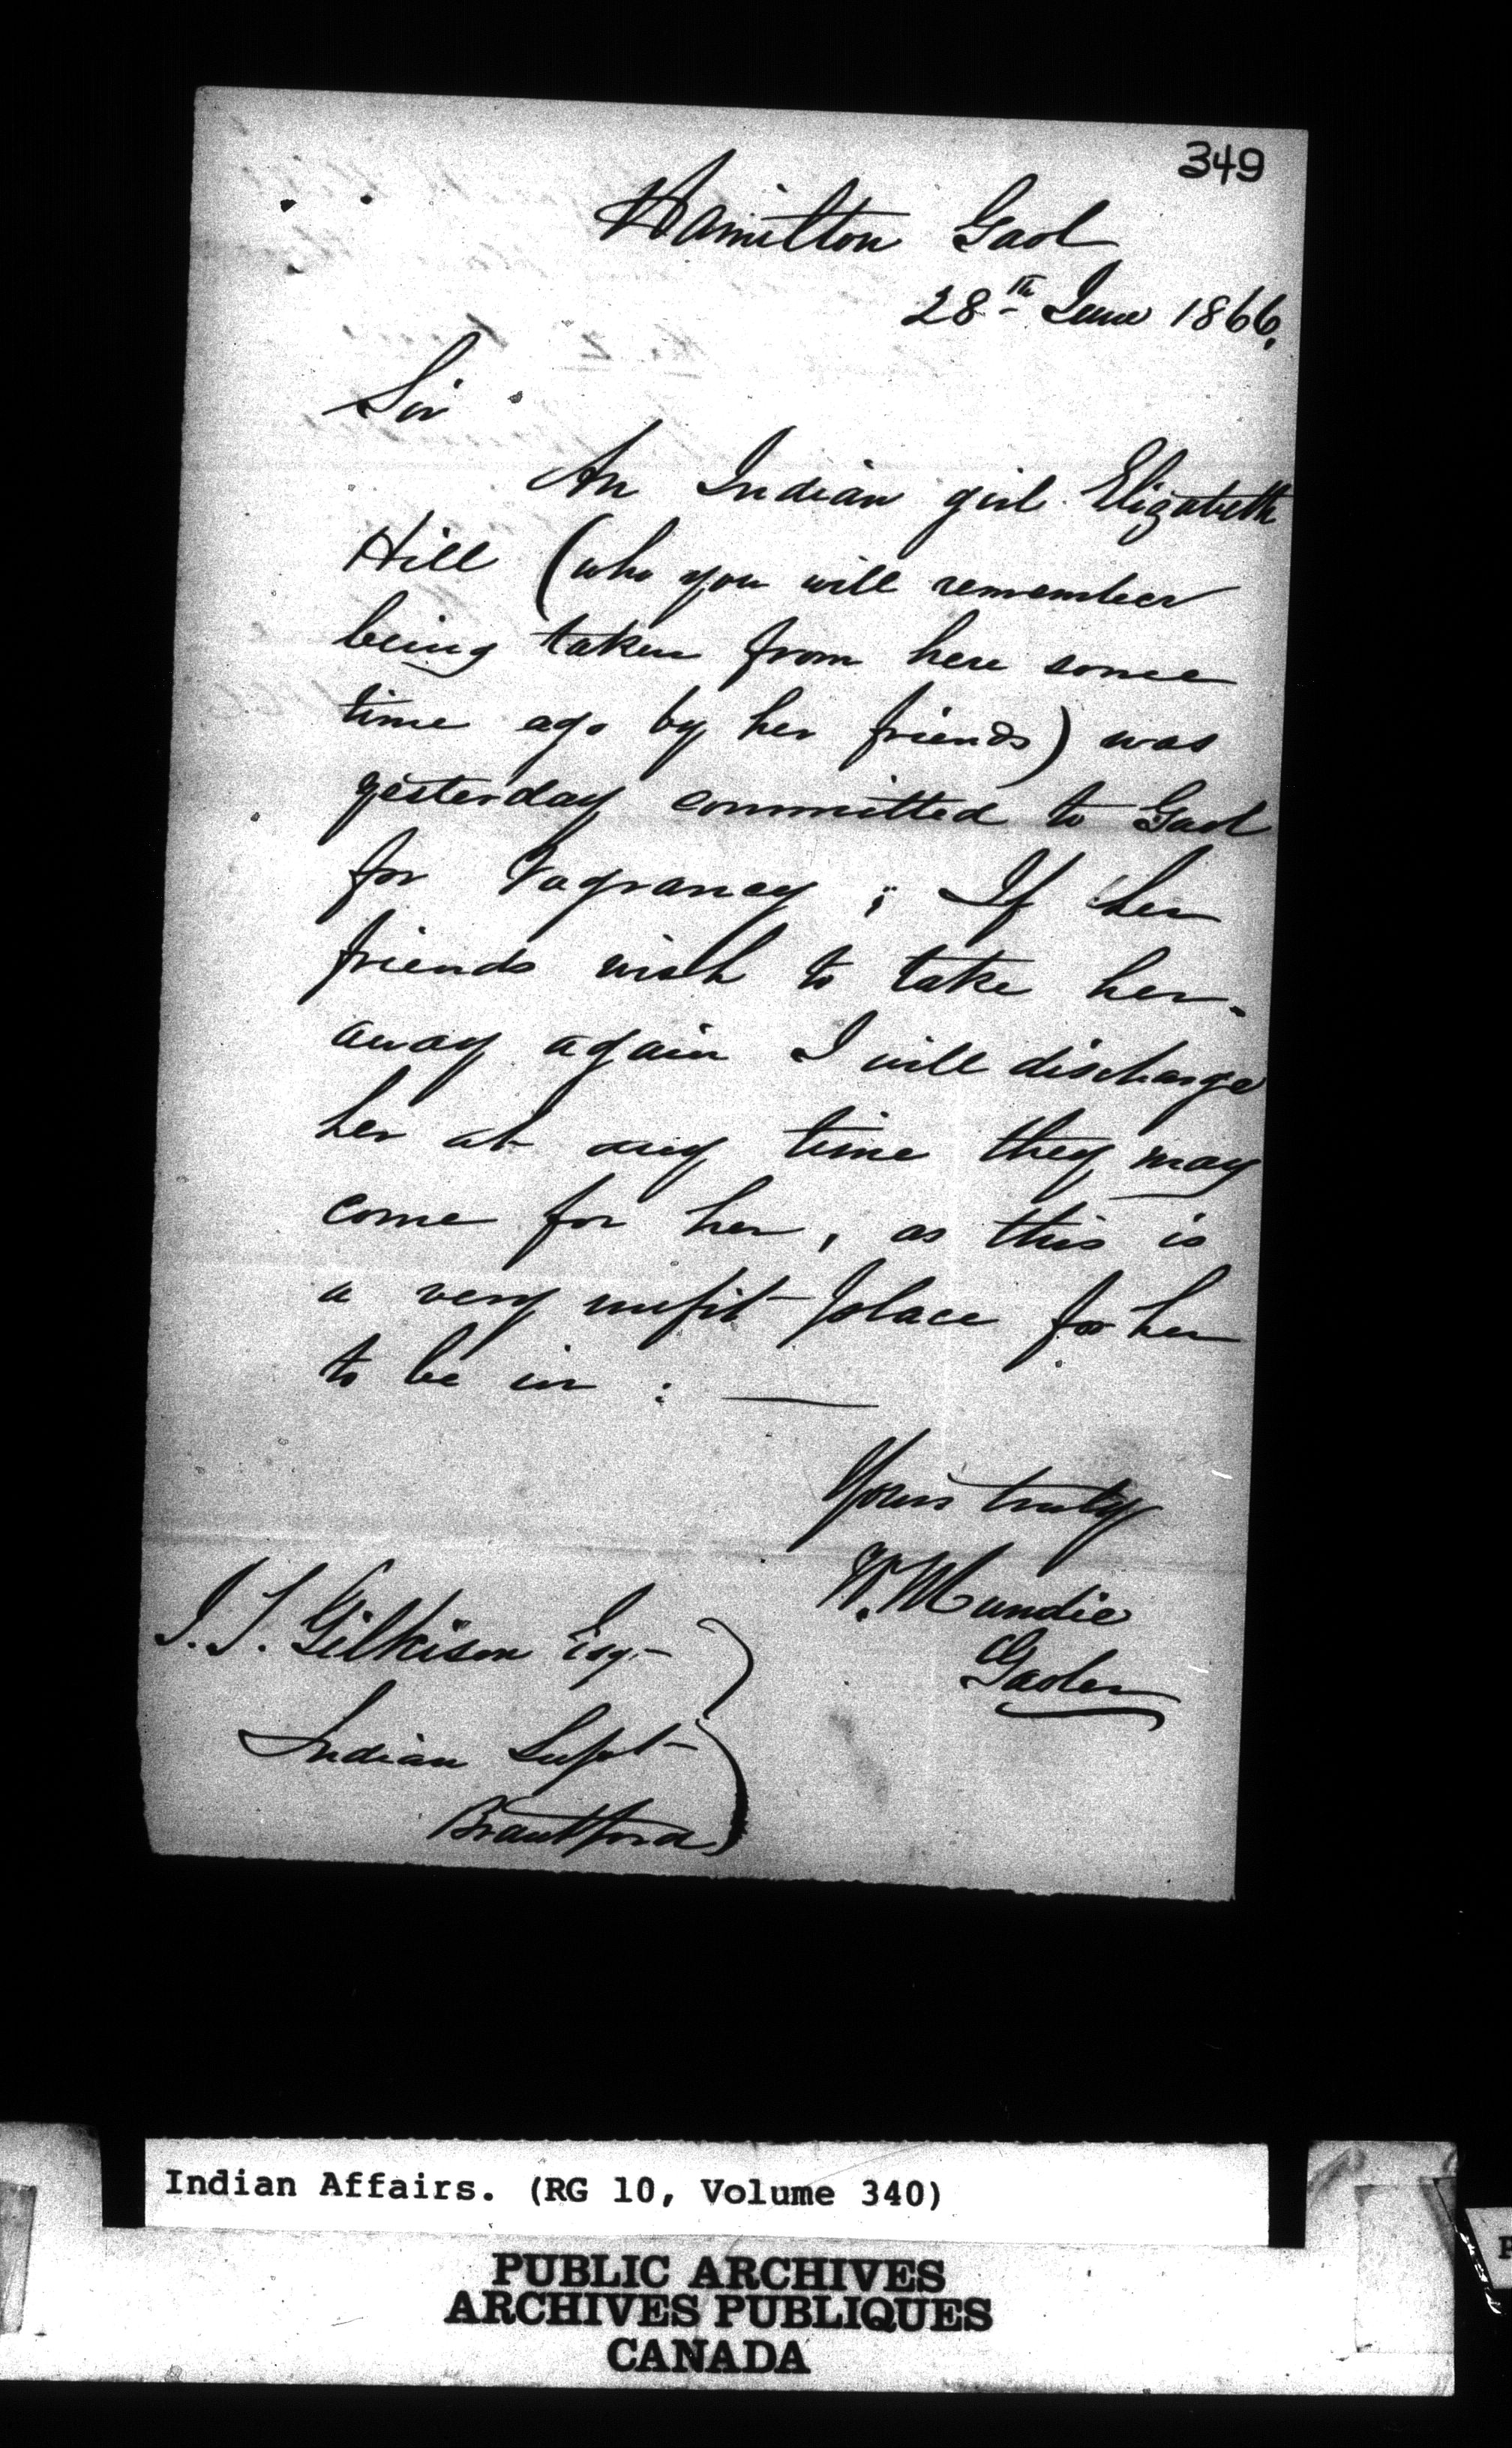 349
Hamilton Gaol
28th June 1866.
Sir
An Indian girl Elizabeth
Hill (who you will remember
being taken from here some
time ago by her friends) was
yesterday committed to Gaol
for Vagrancy ; If her
friends wish to take her
away again I will discharge
her at any time they may
come for her, as this is
a very unfit place for her
to be in : —
Yours truly
W. Mundie
Gaoler
J. T. Gilkison Esq
Indian Supt
Brantford
Indian Affairs. (RG 10, Volume 340)
PUBLIC ARCHIVES
ARCHIVES PUBLIQUES
CANADA